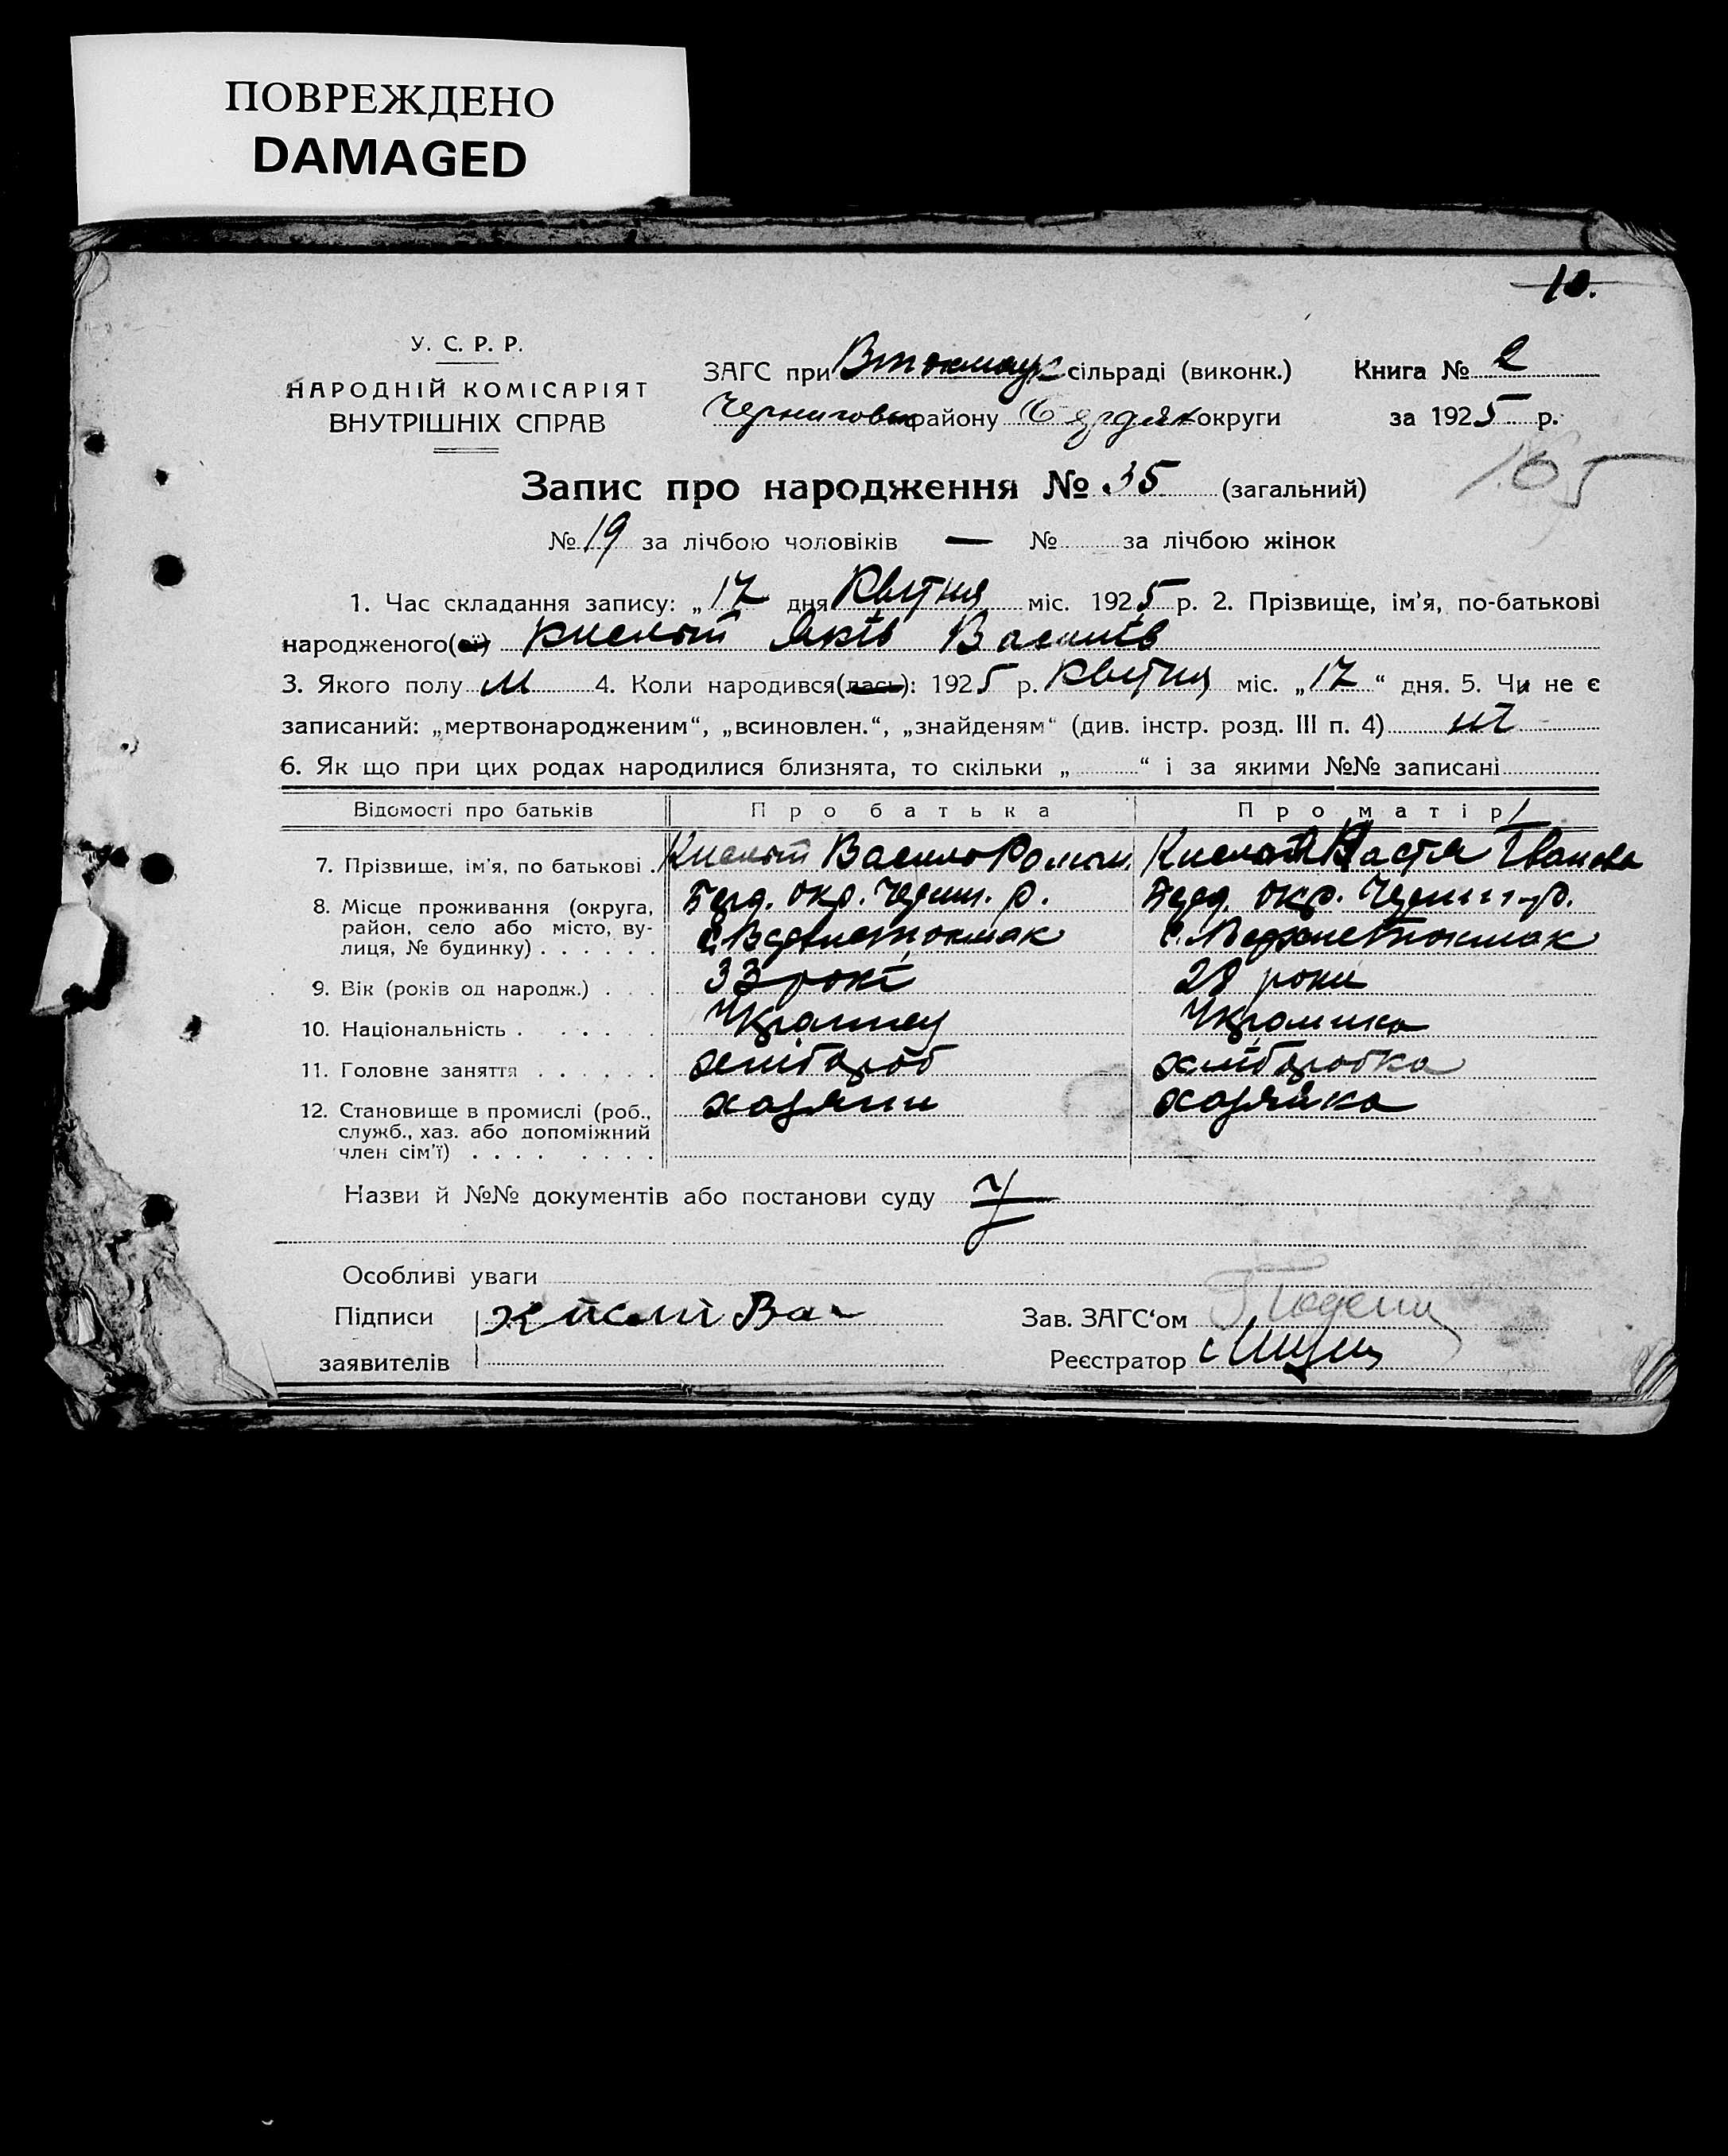 ПОВРЕЖДЕНО
DAMAGED
10.
У. С. Р. Р.
НАРОДНІЙ КОМІСАРІЯТ
ВНУТРІШНІХ СПРАВ
ЗАГС при сільраді (виконк.)
Книга № 2
району округи
за 1925 р.
165
Запис про народження № 35 (загальний)
№ 19 за лічбою чоловіків — № за лічбою жінок
1. Час складання запису: „17 дня Квітня міс. 1925 р. 2. Прізвище, ім'я, по-батькові
народженого(ої) Яків Василів
3. Якого полу М 4. Коли народився(лась): 1925 р. Квітня міс. „17“ дня. 5. Чи не є
записаний: „мертвонародженим“, „всиновлен.“, „знайденям“ (див. інстр. розд. III п. 4) ні
6. Як що при цих родах народилися близнята, то скільки „ “ і за якими №№ записані
Відомості про батьків Про батька Про матір
7. Прізвище, ім'я, по батькові . Василь Роман. Настя Іванова
8. Місце проживання (округа, Берд. окр. Черниг. р. Берд. окр. Черниг. р.
район, село або місто, ву-
лиця, № будинку) . . . . . . с. Верхнетокмак с. Верхнетокмак
9. Вік (років од народж.) . . . 33 рокі 28 роки
10. Національність . . . . . Українец Українка
11. Головне заняття . . . . . . хлібороб хліборобка
12. Становище в промислі (роб., хазяин хазяйка
служб., хаз. або допоміжний
член сім'ї) . . . . . . . .
Назви й №№ документів або постанови суду
Особливі уваги
Підписи Вас
Зав. ЗАГС‘ом
заявителів
Реєстратор